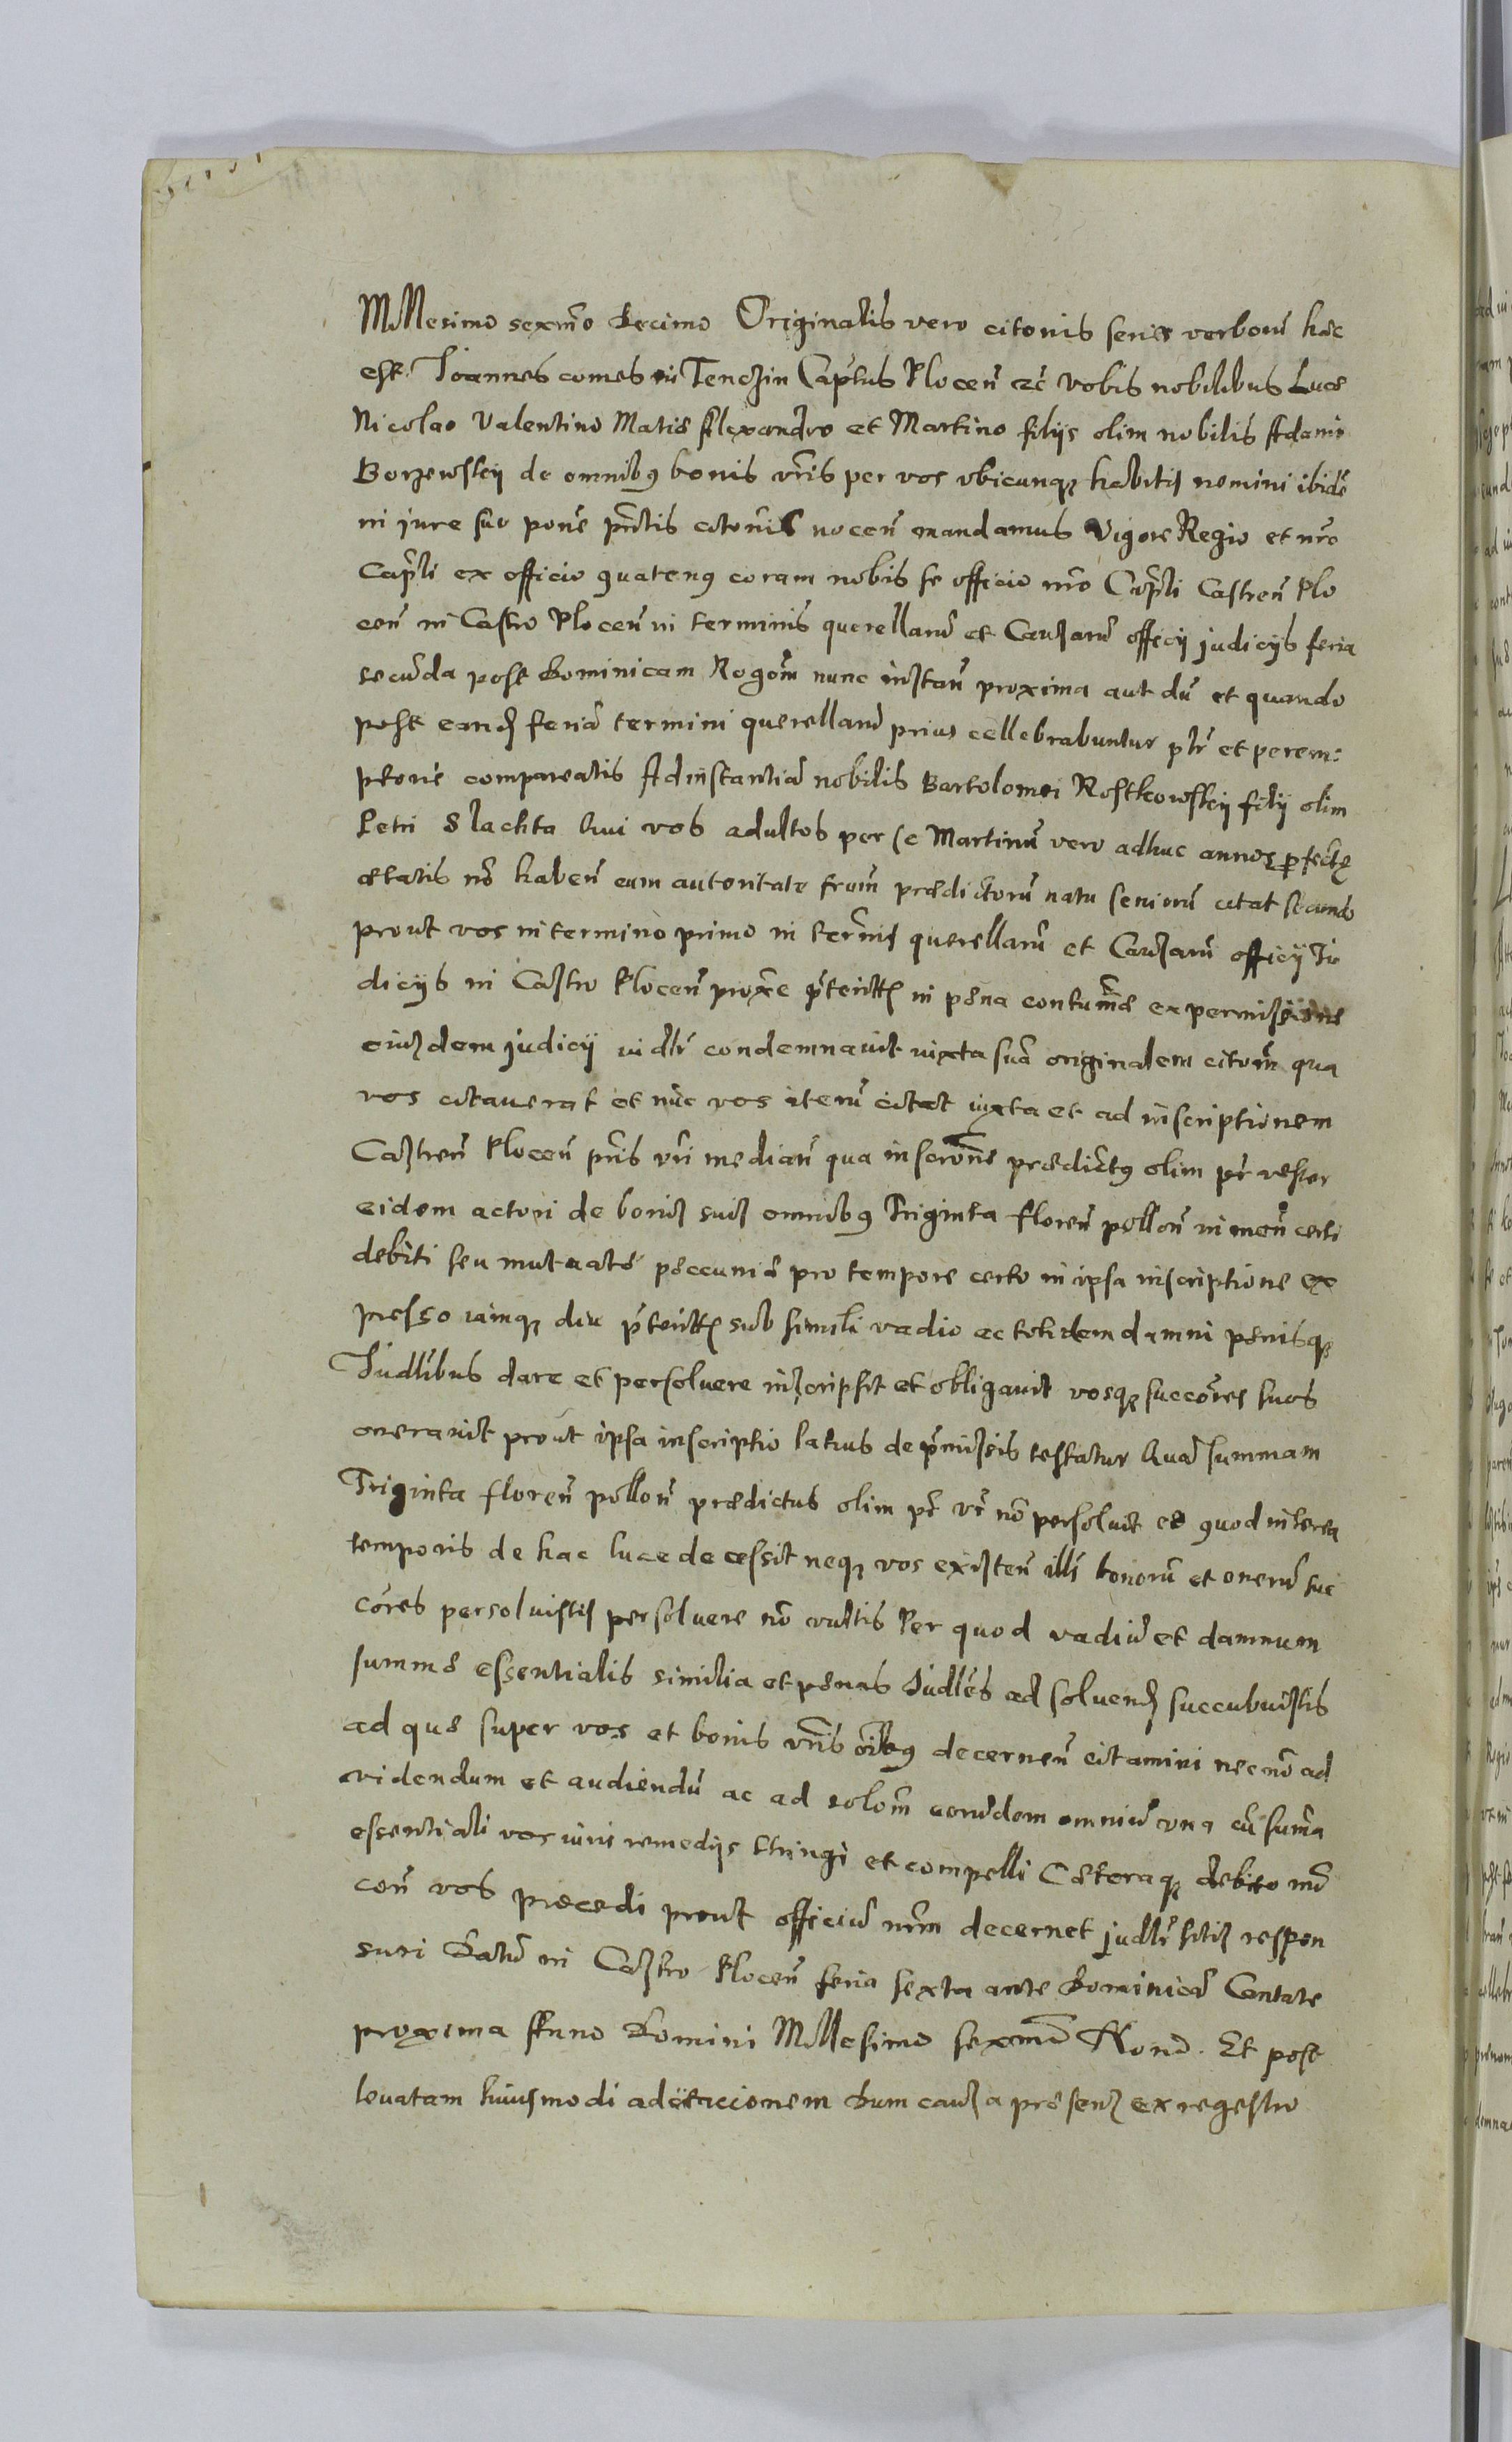 Millesimo sexmo Decimo Originalis vero citonis series verborum hæc
est. Joannes comes in Tenczin Captus Plocen etc Vobis nobilibus Lucæ
Nicolao Valentino Matiæ Alexandro et Martino filijs olim nobilis Adami
Borzewskij de omnibus bonis vris per vos vbicunque habitis nemini ibidē
in jure suo pone prntis citonis nocen mandamus Vigore Regio et nro
Capli ex officio quatenus coram nobis se officio nro Capli Castren Plo
cen in Castro Plocen in terminis querellarū et Causarū officij judicijs feria
secunda post Dominicam Rogom nunc instan proxima aut dū et quando
post eand feriā termini querellarū prius cellebrabuntur ptr et perem:
ptorie compareatis Ad instantiā nobilis Bartolomei Rostkowskij filij olim
Petri Slachta Qui vos adultos per se Martinū vero adhuc annos perfectæ
ætatis nō haben cum autoritate frum prædictorū natu seniorū citat secundo
prout vos in termino primo in terīnis querellarū et Causarū officij Ju
dicijs in Castro Plocen proxe pteritis in pæna contumæ ex permissione
eiusdem judicij in dlr condemnauit iuxta suā originalem citom qua
vos citauerat et nūc vos iterū citat iuxta et ad inscriptionem
Castren Plocen pris vri median qua inscrone prædictus olim pr vester
eidem actori de bonis suis omnibus Triginta floren pollon in mon certi
debiti seu mutuatæ peccuniæ pro tempore certo in ipsa inscriptione ex
presso iamque diu pteritis sub simili vadio ac totidem damni pænisque
Judlibus dare et persoluere inscripsit et obligauit vosque succores suos
onerauit prout ipsa inscriptio latius de pmissis testatur Quā summam
Triginta floren pollon prædictus olim pr vr nō persoluit eo quod interea
temporis de hac luce decessit neque vos existen illi bonorū et onerū suc
cores persoluistis persoluere nō vultis Per quod vadiū et damnum
summæ essentialis similia et pænas Judles ad soluend succubuistis
ad quæ super vos et bonis vris oibus decernen citamini necnō ad
videndum et audiendū ac ad solom eorūdem omniū vna cū suma
essentiali vos iuris remedijs stringi et compelli Cæteraque debito mō
con vos procedi prout officiū nrm decernet judlr sitis respon
suri Datū in Castro Plocen feria sexta ante Dominicā Cantate
proxima Anno Domini Millesimo sexmo Nono. Et post
leuatam huiusmodi adcitacionem Dum causa præsens ex regestro